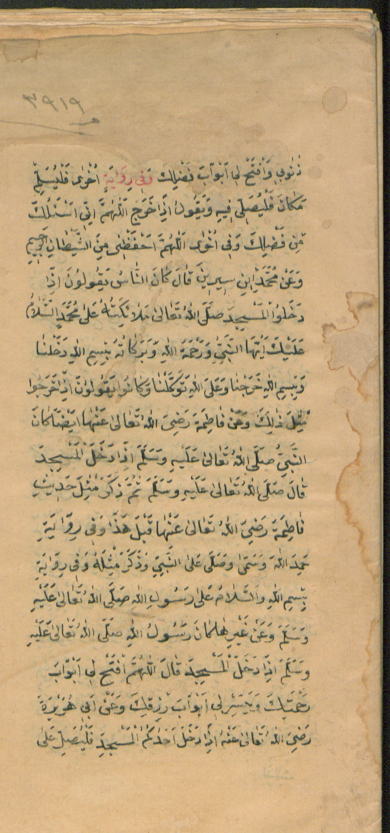 ٣٩١٩
ذنوبي وافتح لي ابواب فضلك وفي رواية اخرى فليسلم
مكان فليصلي فيه ويقول اذا خرج اللهم اني اسئلك
من فضلك وفي اخرى اللهم احفظني من الشيطان الرجيم
وعن محمد ابن سيرين قال كان الناس يقولون اذا
دخلوا المسجد صلى الله تعالى وملائكته على محمد السلام
عليك ايها النبي ورحمة الله وبركاته بسم الله دخلنا
وبسم الله خرجنا وعلى الله توكلنا وكانوا يقولون اذا خرجوا
مثل ذلك وعن فاطمة رضي الله تعالى عنها ايضا كان
النبي صلى الله تعالى عليه وسلم اذا دخل المسجد
قال صلى الله تعالى عليه وسلم ثم ذكر مثل حديث
فاطمة رضي الله تعالى عنها قبل هذا وفي رواية
حمد الله وسمى وصلى على النبي وذكر مثله وفي رواية
بسم الله والسلام على رسول الله صلى الله تعالى عليه
وسلم وعن غيرها كان رسول الله صلى الله تعالى عليه
وسلم اذا دخل المسجد قال اللهم افتح لي ابواب
رحمتك ويسر لي ابواب رزقك وعن ابي هريرة
رضي الله تعالى عنه اذا دخل احدكم المسجد فليصل على